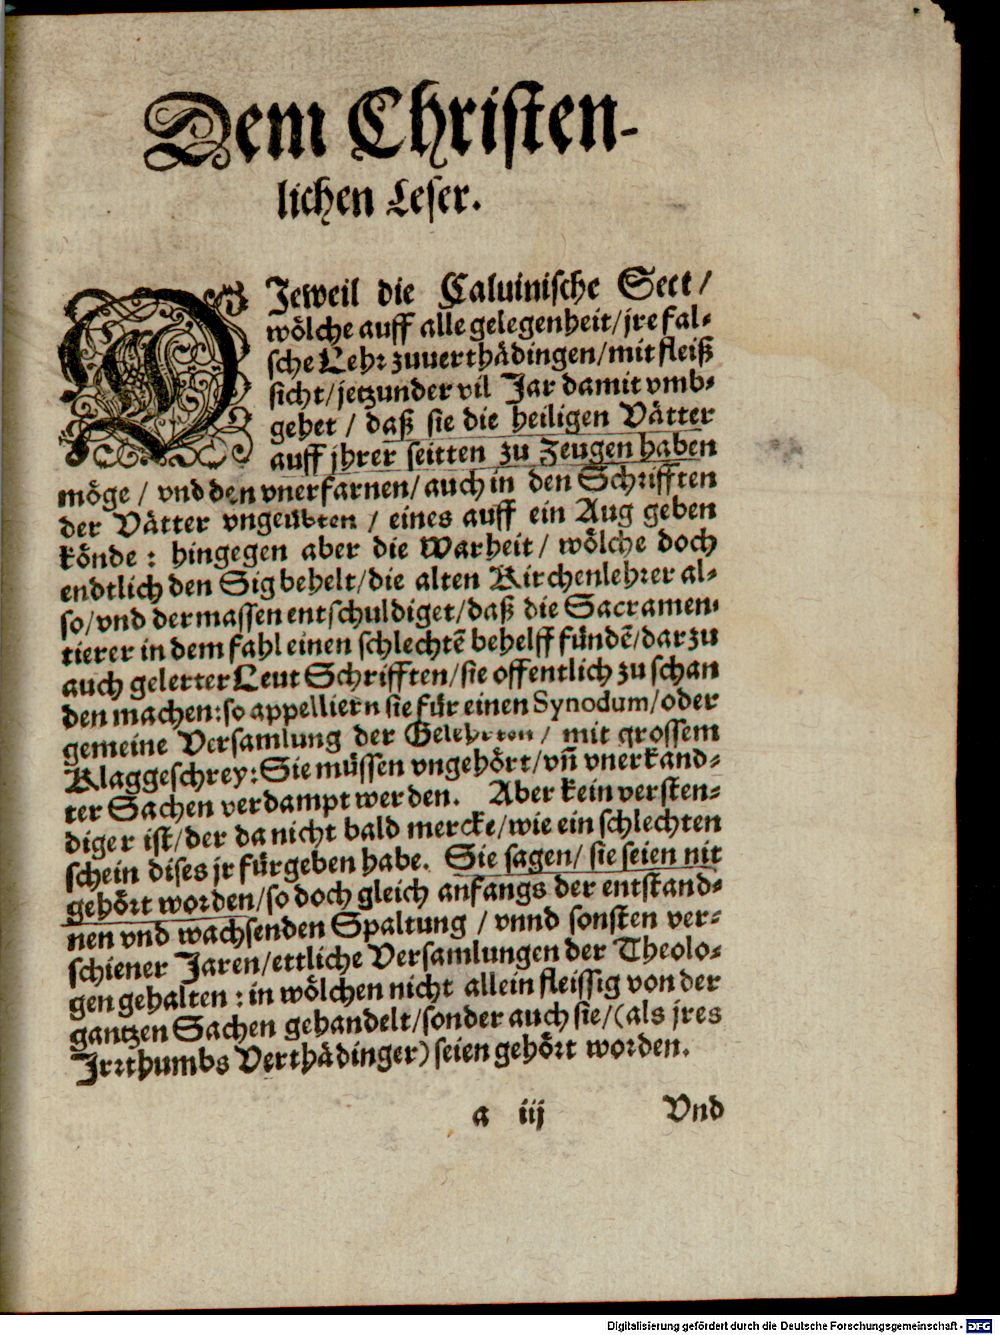 Dem Christen-
lichen Leser.
DIeweil die Caluinische Sect/
wölche auff alle gelegenheit/ jre fal-
sche Lehr zuuerthädingen/ mit fleiß
sicht/ jetzunder vil Jar damit vmb-
gehet / daß sie die heiligen Vätter
auff jhrer seitten zu Zeugen haben
möge / vnd den vnerfarnen/ auch in den Schrifften
der Vätter vngeübten / eines auff ein Aug geben
könde : hingegen aber die Warheit/ wölche doch
endtlich den Sig behelt/ die alten Kirchenlehrer al-
so/ vnd dermassen entschuldiget/ daß die Sacramen-
tierer in dem fahl einen schlechtē behelff fündē/ darzu
auch gelerter Leut Schrifften/ sie offentlich zu schan
den machen: so appelliern sie für einen Synodum/ oder
gemeine Versamlung der Gelehrten/ mit grossem
Klaggeschrey: Sie müssen vngehört/ vñ vnerkand-
ter Sachen verdampt werden. Aber kein versten-
diger ist/ der da nicht bald mercke/ wie ein schlechten
schein dises jr fürgeben habe. Sie sagen/ sie seien nit
gehört worden/ so doch gleich anfangs der entstand-
nen vnd wachsenden Spaltung / vnnd sonsten ver-
schiener Jaren/ ettliche Versamlungen der Theolo-
gen gehalten : in wölchen nicht allein fleissig von der
gantzen Sachen gehandelt/ sonder auch sie/ (als jres
Irrthumbs Verthädinger) seien gehört worden.
a iij Vnd
Digitalisierung gefördert durch die Deutsche Forschungsgemeinschaft - DFG